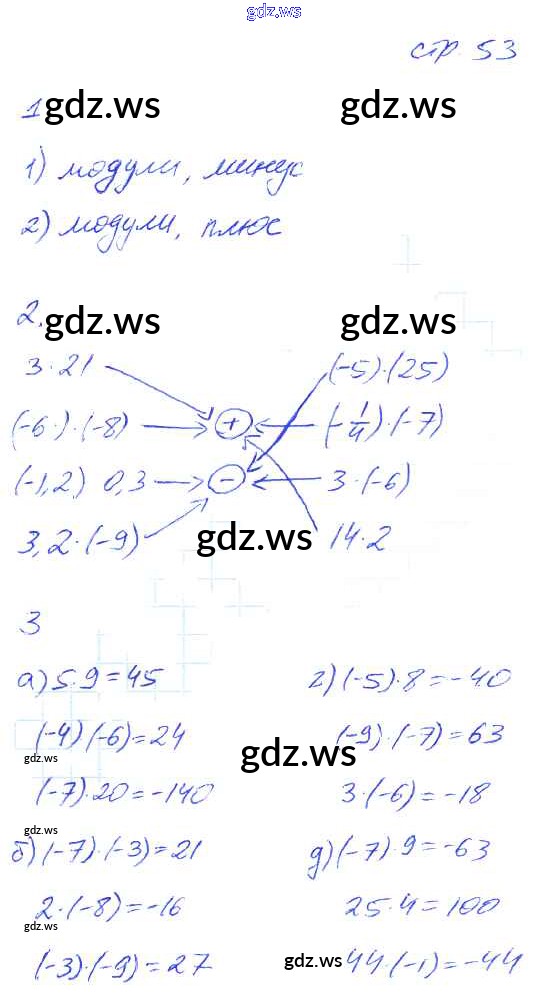 gdz.ws
стр. 53
1 gdz.ws gdz.ws
1) модули, минус
2) модули, плюс
2. gdz.ws gdz.ws
3·21 (-5)·(25)
(-6·)·(-8) + (-1/4)·(-7)
(-1,2) 0,3 - 3·(-6)
3,2·(-9) gdz.ws 14·2
3
а) 5·9=45 г) (-5)·8=-40
(-4)(-6)=24 (-9)·(-7)=63
gdz.ws gdz.ws
(-7)·20=-140 3·(-6)=-18
gdz.ws
б) (-7)·(-3)=21 д) (-7)·9=-63
2·(-8)=-16 25·4=100
gdz.ws
(-3)·(-9)=27 gdz.ws 44·(-1)=-44